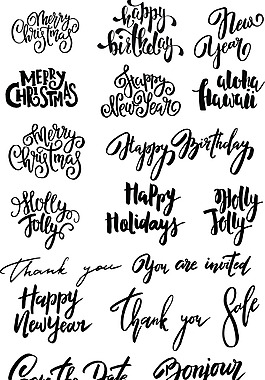 Merry
Christmas
happy
birthday
New
Year
MERRY
CHRISTMAS
Happy
New Year
aloha
Hawaii
Merry
Christmas
Happy Birthday
Holly
Jolly
Happy
Holidays
Holly
Jolly
Thank you
You are invited
Happy
New Year
Thank you
Sale
Save the Date
Bonjour